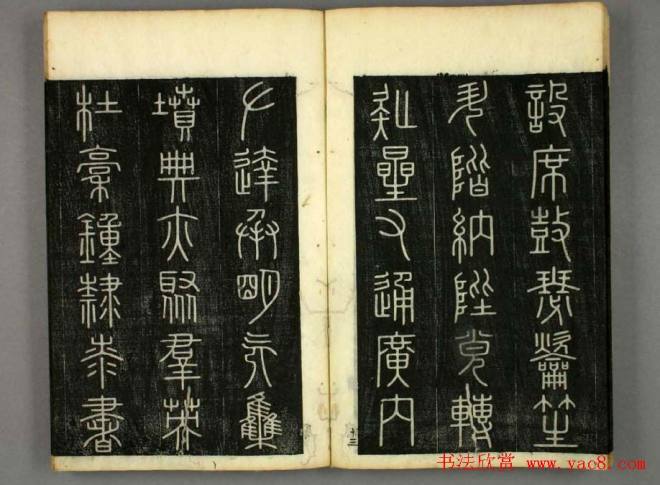 設席鼓瑟龡笙
升階納陛弁轉
疑星右通廣内
左達承明既集
墳典亦聚羣英
杜稾鐘隸漆書
十三
书法欣赏 www.yac8.com